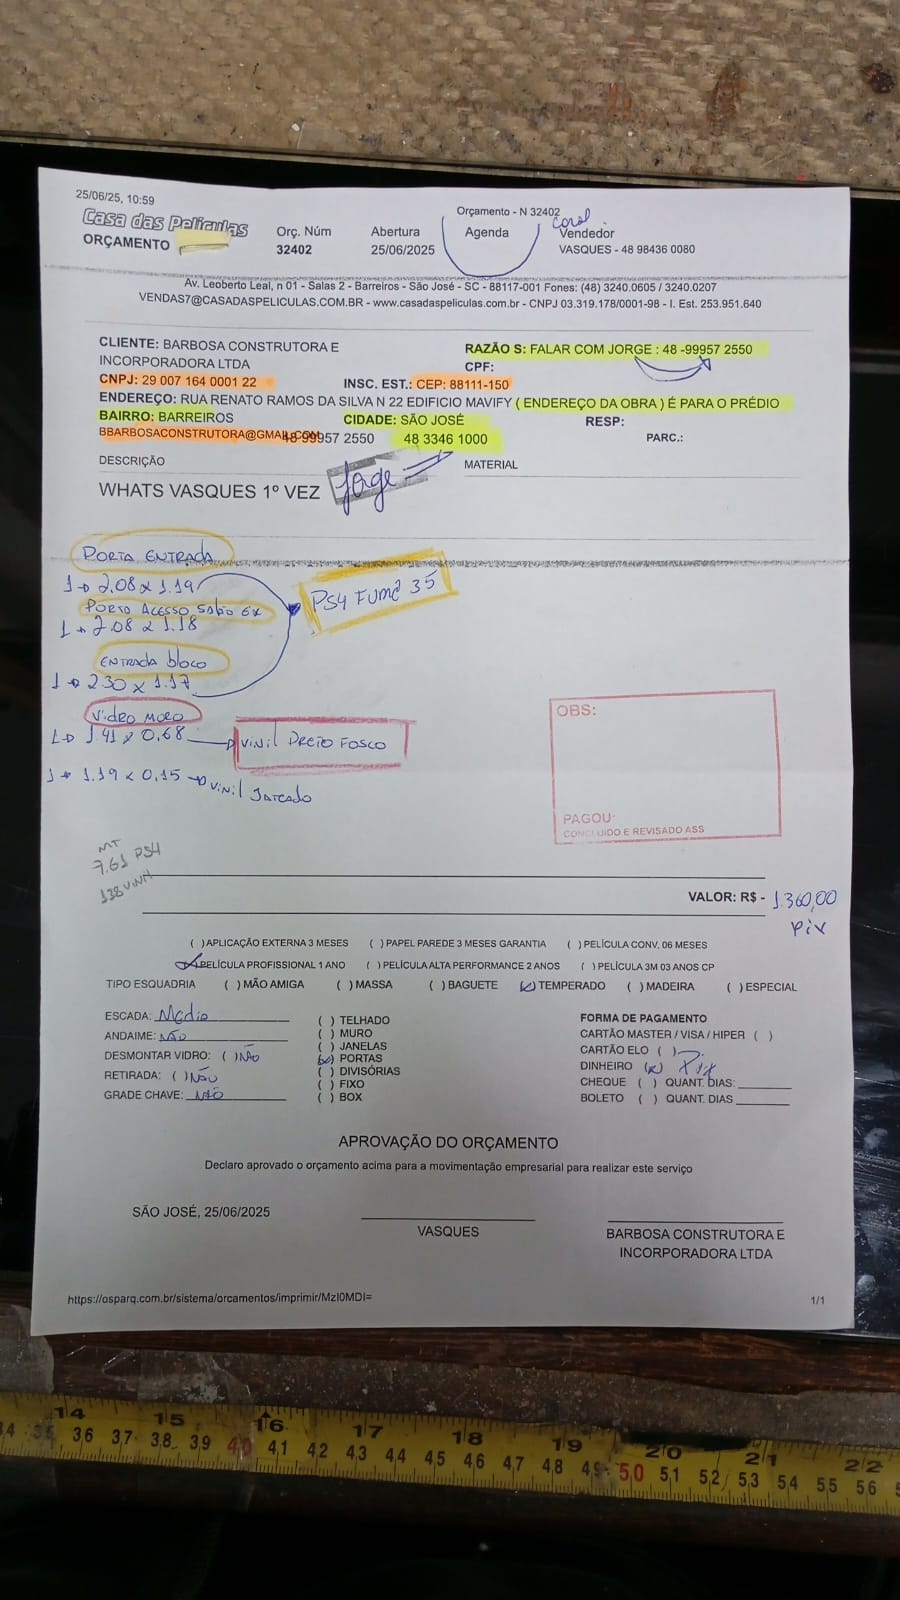 25/06/25, 10:59
Orçamento - N 32402
Casa das Películas
ORÇAMENTO
Orç. Núm
32402
Abertura
25/06/2025
Agenda
Vendedor
VASQUES - 48 98436 0080
Av. Leoberto Leal, n 01 - Salas 2 - Barreiros - São José - SC - 88117-001 Fones: (48) 3240.0605 / 3240.0207
VENDAS7@CASADASPELICULAS.COM.BR - www.casadaspeliculas.com.br - CNPJ 03.319.178/0001-98 - I. Est. 253.951.640
CLIENTE: BARBOSA CONSTRUTORA E
INCORPORADORA LTDA
RAZÃO S: FALAR COM JORGE : 48 -99957 2550
CPF:
CNPJ: 29 007 164 0001 22
INSC. EST.: CEP: 88111-150
ENDEREÇO: RUA RENATO RAMOS DA SILVA N 22 EDIFICIO MAVIFY ( ENDEREÇO DA OBRA ) É PARA O PRÉDIO
BAIRRO: BARREIROS
CIDADE: SÃO JOSÉ
RESP:
BBARBOSACONSTRUTORA@GMAIL.COM
48 99957 2550
48 3346 1000
PARC.:
DESCRIÇÃO
MATERIAL
WHATS VASQUES 1º VEZ
Jorge
PORTA ENTRADA
1 → 2.08 x 1.19
PS4 FUMÊ 35
1 → 2.08 x 1.18
ENTRADA bloco
1 → 2.30 x 1.17
VIDRO MURO
1 → 1.41 x 0,68 → VINIL PRETO FOSCO
1 → 1.19 x 0,15 → VINIL JATEADO
OBS:
PAGOU:
CONCLUÍDO E REVISADO ASS
MT
7.61 PS4
138 VINIL
VALOR: R$ - 1.360,00
Pix
( ) APLICAÇÃO EXTERNA 3 MESES ( ) PAPEL PAREDE 3 MESES GARANTIA ( ) PELÍCULA CONV. 06 MESES
PELÍCULA PROFISSIONAL 1 ANO ( ) PELÍCULA ALTA PERFORMANCE 2 ANOS ( ) PELÍCULA 3M 03 ANOS CP
TIPO ESQUADRIA ( ) MÃO AMIGA ( ) MASSA ( ) BAGUETE (x) TEMPERADO ( ) MADEIRA ( ) ESPECIAL
ESCADA: Médio
ANDAIME: NÃO
DESMONTAR VIDRO: ( ) NÃO
RETIRADA: ( ) NÃO
GRADE CHAVE: NÃO
( ) TELHADO
( ) MURO
( ) JANELAS
(x) PORTAS
( ) DIVISÓRIAS
( ) FIXO
( ) BOX
FORMA DE PAGAMENTO
CARTÃO MASTER / VISA / HIPER ( )
CARTÃO ELO ( )
DINHEIRO (x) Pix
CHEQUE ( ) QUANT. DIAS:
BOLETO ( ) QUANT. DIAS
APROVAÇÃO DO ORÇAMENTO
Declaro aprovado o orçamento acima para a movimentação empresarial para realizar este serviço
SÃO JOSÉ, 25/06/2025
VASQUES
BARBOSA CONSTRUTORA E
INCORPORADORA LTDA
https://osparq.com.br/sistema/orcamentos/imprimir/MzI0MDI=
1/1
14 15 16 17 18 19 20 21 22
36 37 38 39 40 41 42 43 44 45 46 47 48 49 50 51 52 53 54 55 56